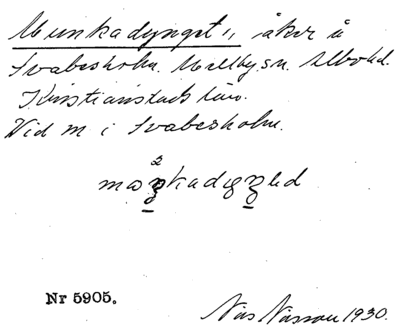 Munkadynget", åker å
Svabesholm. Mellby sn. Albo hd.
Kristianstads län.
Vid m i Svabesholm.
Nr 5905.
Nils Nässén 1930.